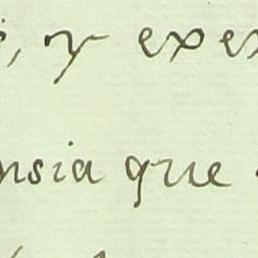 , y exe
nsia que